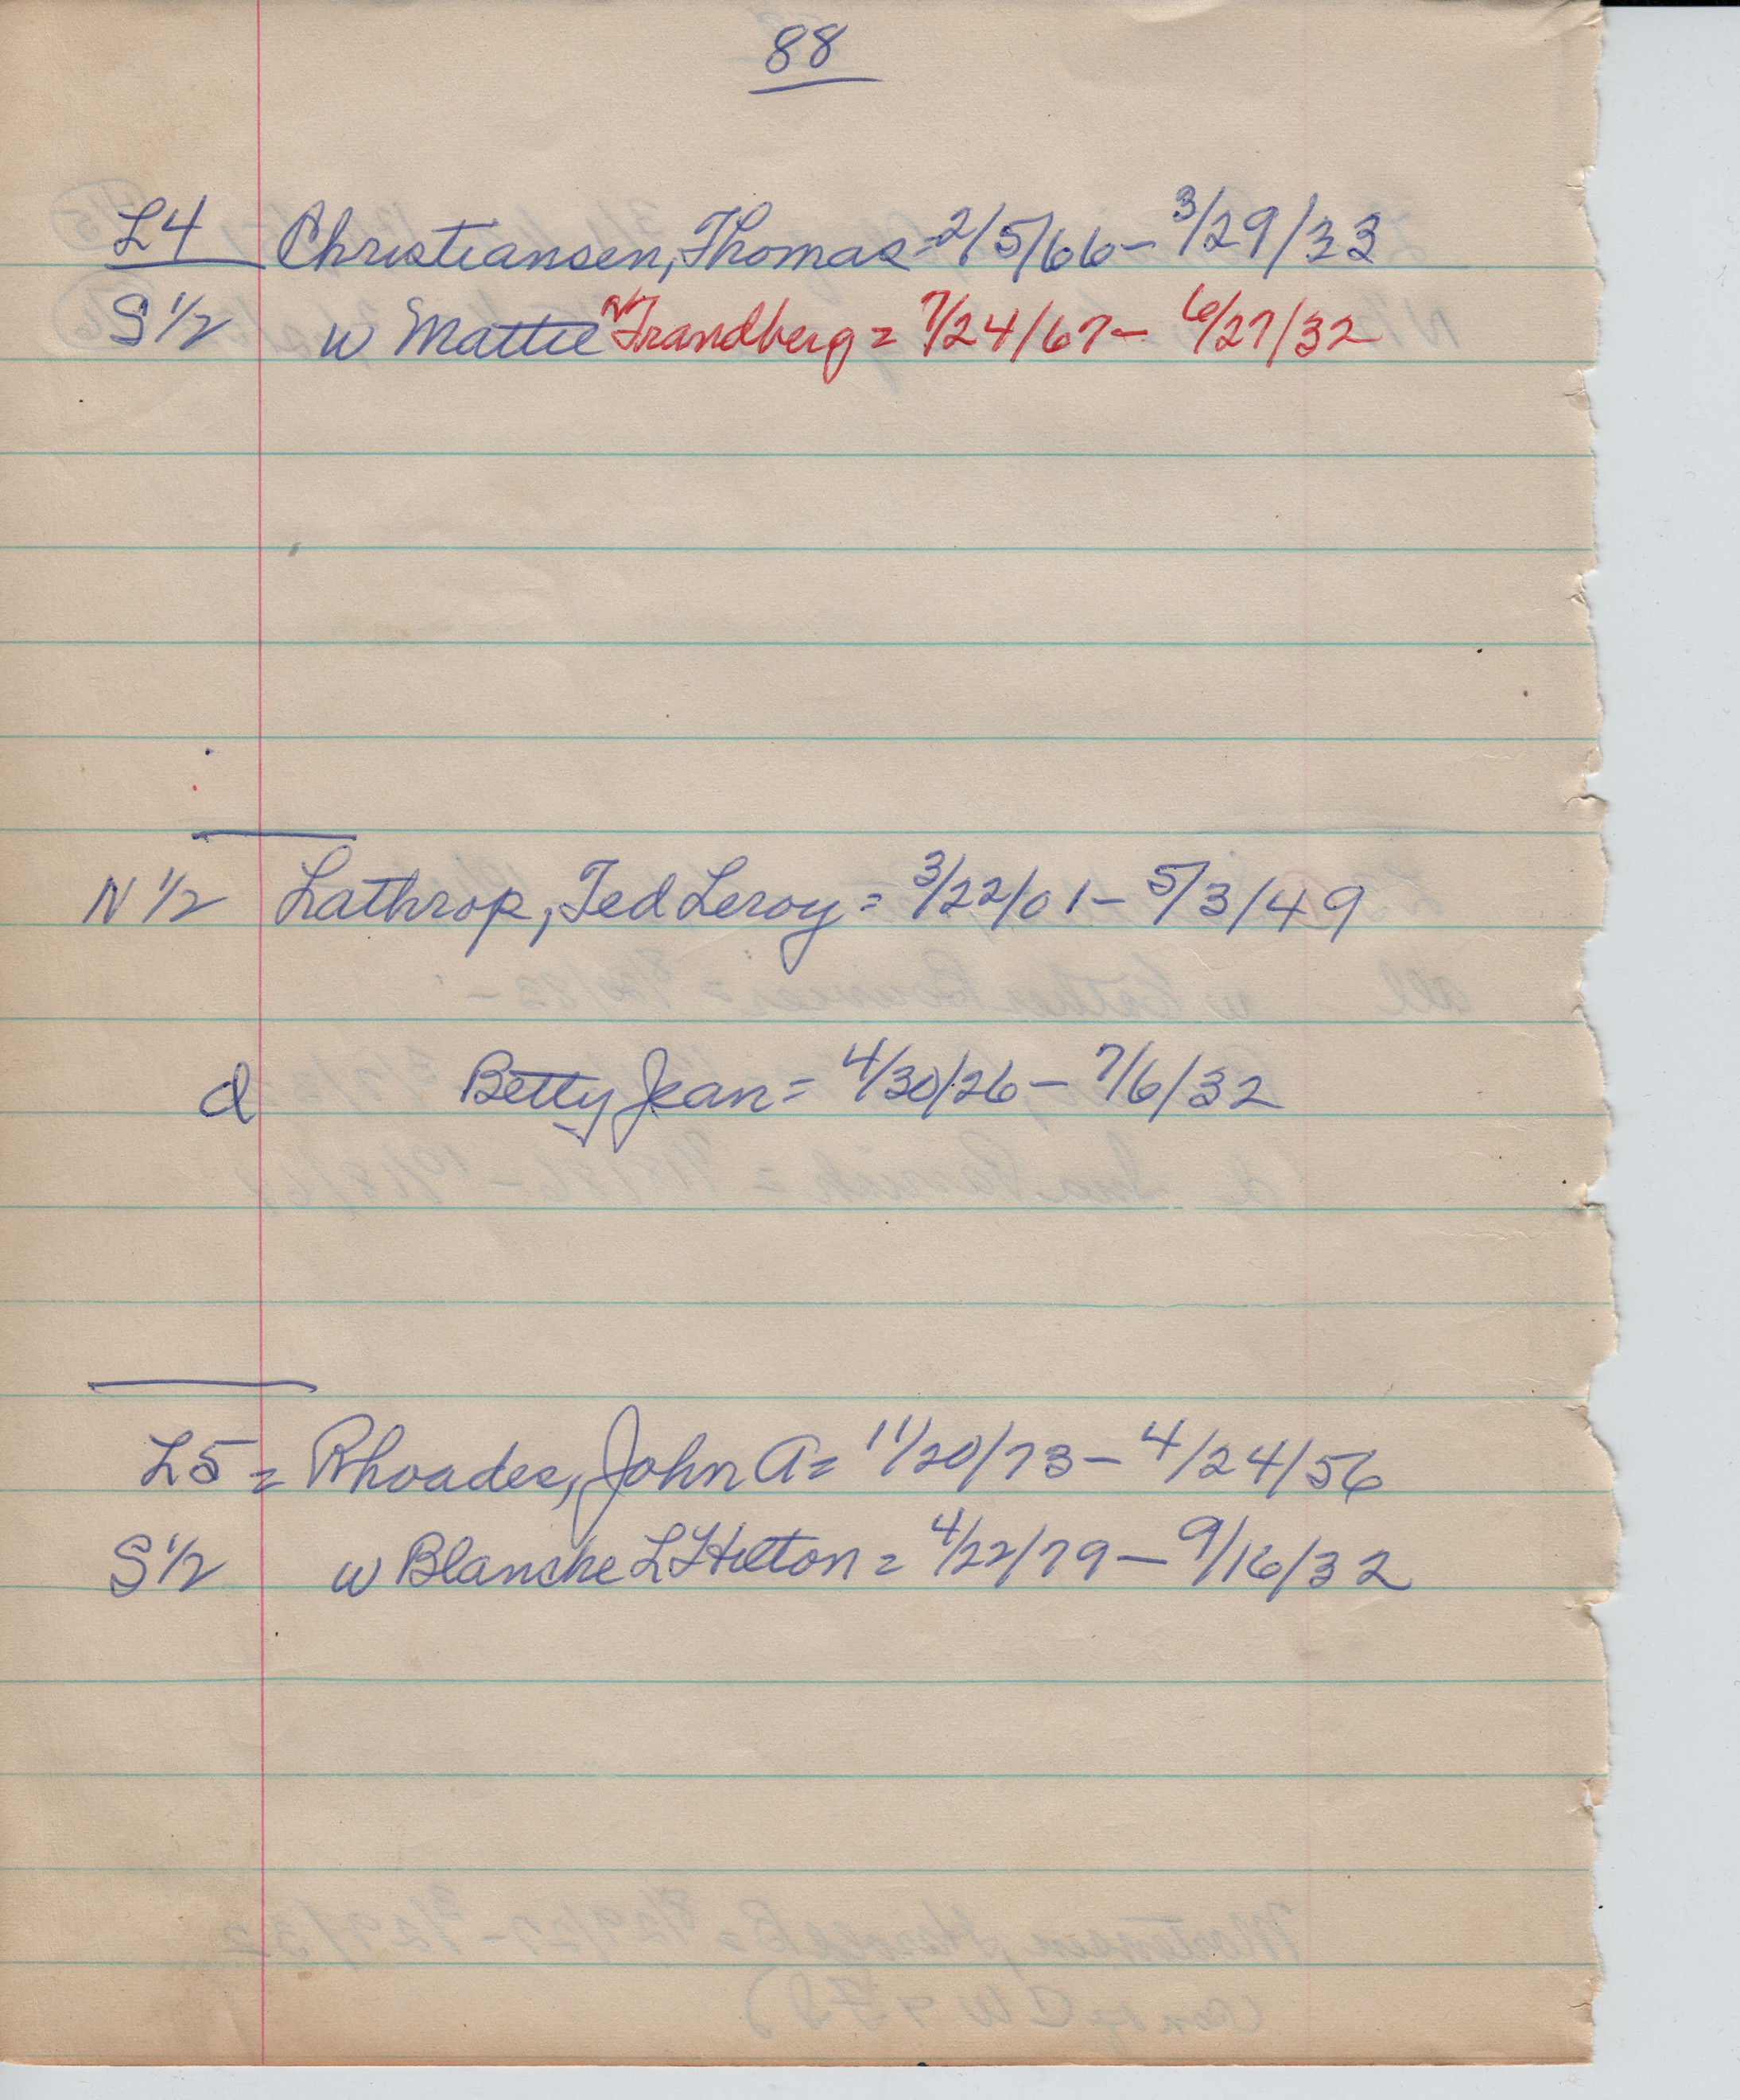 88
L4 Christiansen, Thomas = 2/5/66 - 3/29/33
S 1/2 w Mattie Frandberg = 7/24/67 - 6/27/32
N 1/2 Lathrop, Ted Leroy = 3/22/01 - 5/3/49
d Betty Jean = 4/30/26 - 7/6/32
L5 = Rhoades, John A = 11/20/73 - 4/24/56
S 1/2 w Blanche L Hilton = 4/22/79 - 9/16/32